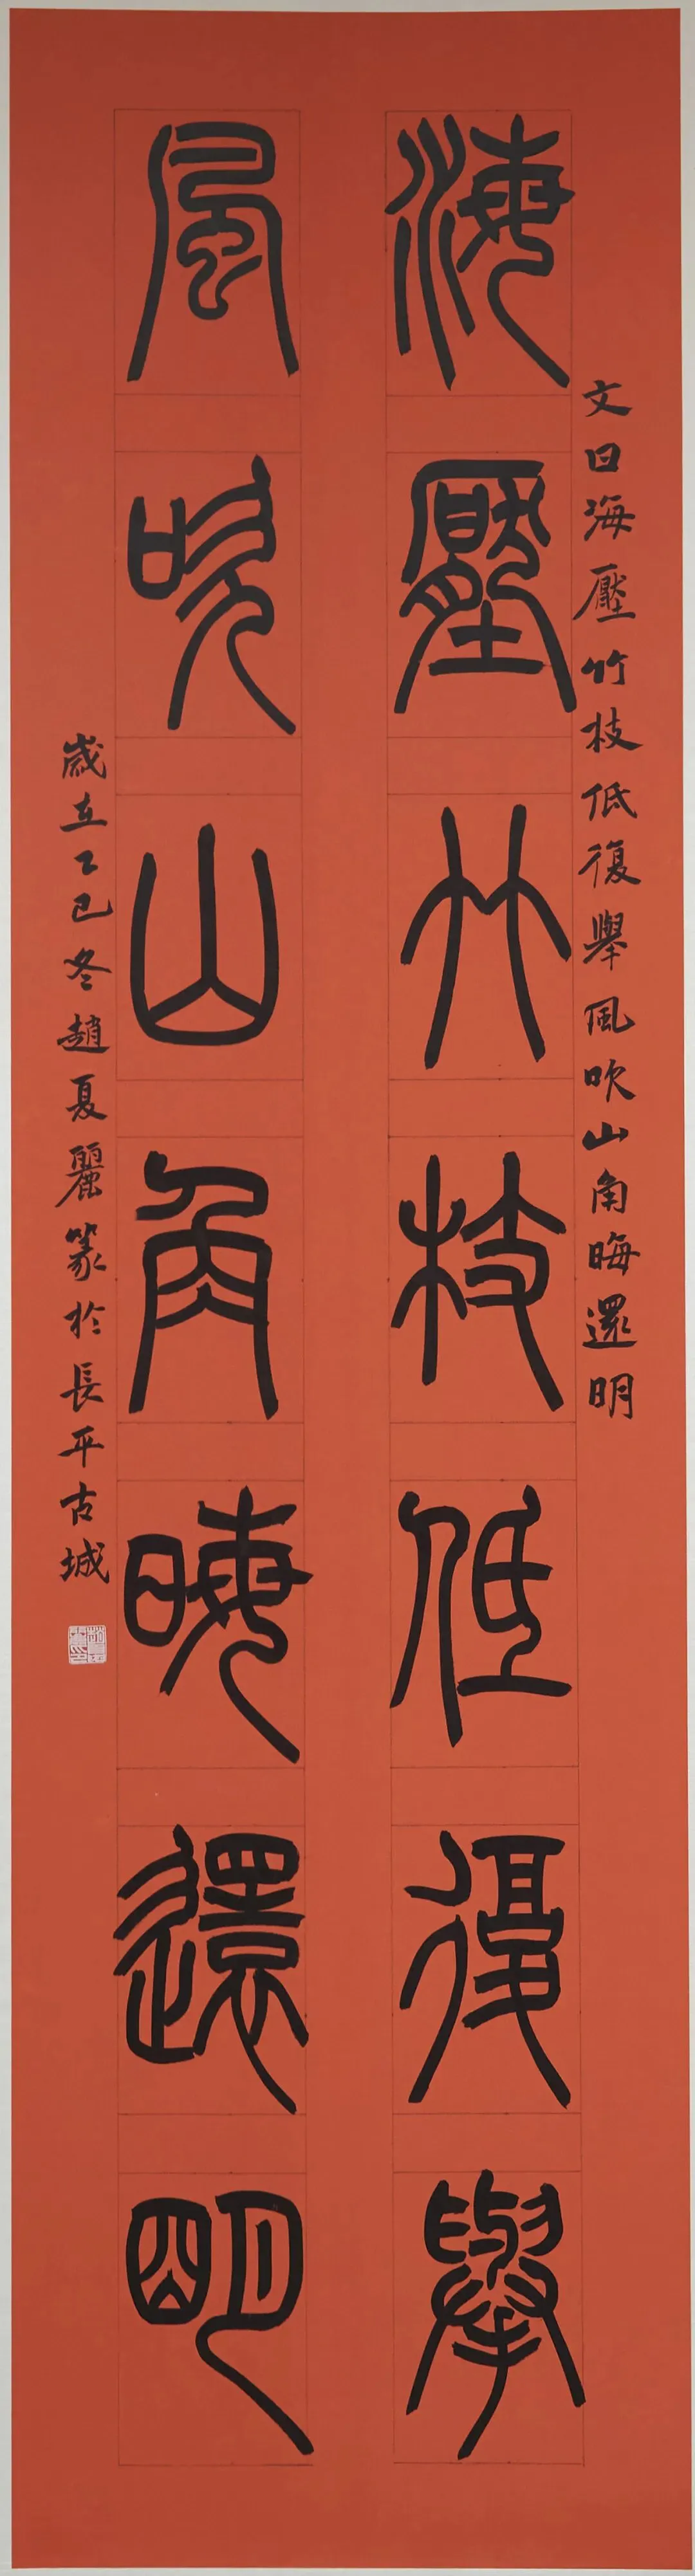 文曰海壓竹枝低復舉風吹山角晦還明
海壓竹枝低復舉
風吹山角晦還明
歲在乙巳冬趙夏麗篆於長平古城